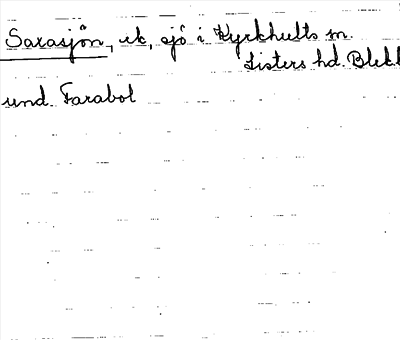 Saxasjön, ek, sjö i Kyrkhults sn.
Listers hd. Blekl
und. Farabol